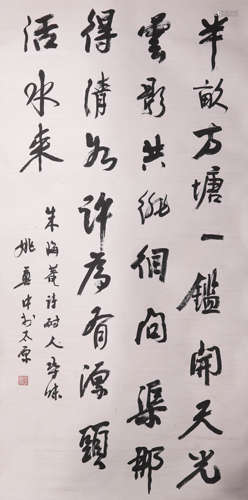 半畝方塘一鑑開天光
雲影共徘徊問渠那
得清如許為有源頭
活水来
朱晦菴詩耐人尋味
姚奠中太原